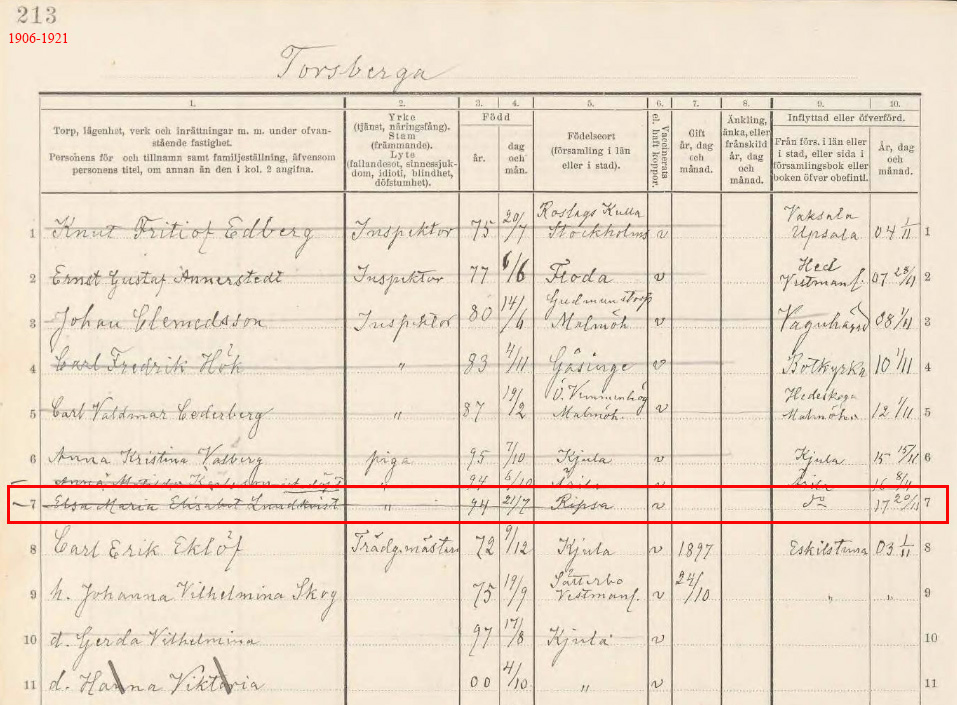 213
1906-1921
Torsberga
1. 2. 3. 4. 5. 6. 7. 8. 9. 10.
Torp, lägenhet, verk och inrättningar m. m. under ofvan-
stående fastighet.
Personens för och tillnamn samt familjeställning, äfvensom
personens titel, om annan än den i kol. 2 angifna.
Yrke
(tjänst, näringsfång).
Stam
(främmande).
Lyte
(fallandesot, sinnessjuk-
dom, idioti, blindhet,
döfstumhet).
Född
år.
dag
och
mån.
Födelseort
(församling i län
eller i stad).
Vaccinerats
el. haft koppor.
Gift
år, dag
och
månad.
Änkling,
änka, eller
frånskild
år, dag
och
månad.
Inflyttad eller öfverförd.
Från förs. i län eller
i stad, eller sida i
församlingsbok eller
boken öfver obefintl.
År, dag
och
månad.
1 Knut Fritiof Edberg Inspektor 75 20/7 Roslags Kulla Stockholms v Vaksala Upsala 04 1/11 1
2 Ernst Gustaf Annerstedt Inspektor 77 6/6 Floda v Hed Vestmanl. 07 28/11 2
3 Johan Clemedsson Inspektor 80 14/6 Gudmuntorp Malmöh v Vagnhärad 08 1/11 3
4 Carl Fredrik Hök " 83 4/11 Gåsinge v Botkyrka 10 1/11 4
5 Carl Valdmar Cederberg " 87 19/2 Ö. Vemmenhög Malmöh. v Hedeskoga Malmöh. 12 1/11 5
6 Anna Kristina Valberg piga 95 7/10 Kjula v Kjula 15 15/11 6
Anna " 94 6/10 v 16 8/11
7 Elsa Maria Elisabet Lundkvist " 94 21/7 Ripsa v do 17 20/11 7
8 Carl Erik Eklöf Trädg.mästare 72 9/12 Kjula v 1897 Eskilstuna 03 1/11 8
9 h. Johanna Vilhelmina Skog 75 19/9 Sätterbo Vestmanl. v 24/10 " " 9
10 d. Gerda Vilhelmina 97 17/8 Kjula v 10
11 d. Hanna Viktoria 00 4/10 " v 11